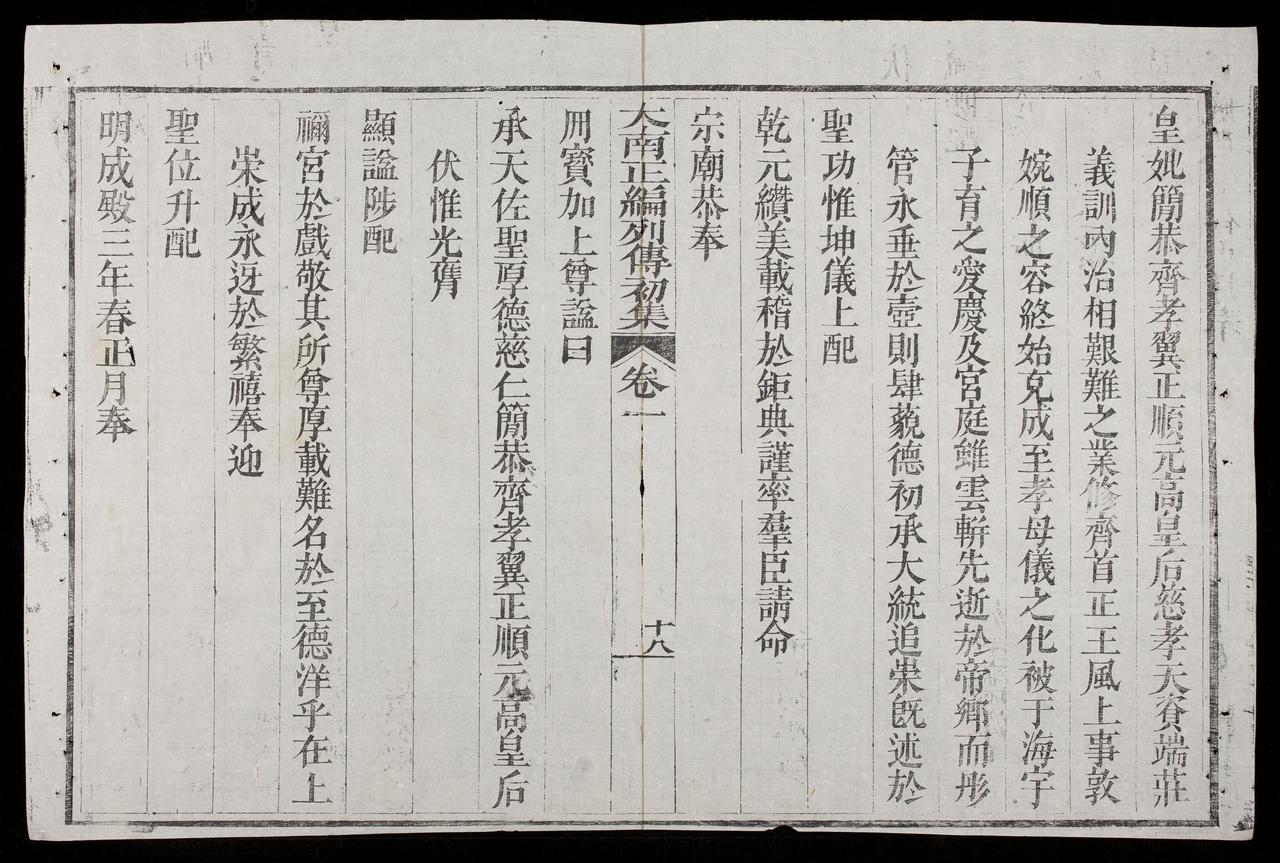 皇妣簡恭齊孝翼正順元高皇后慈孝天資端莊
義訓內治相艱難之業修齊首正王風上事敦
婉順之容終始克成至孝母儀之化被于海宇
子育之愛慶及宮庭雖雲軿先逝於帝鄉而彤
管永垂於壼則肆藐德初承大統追崇旣述於
聖功惟坤儀上配
乾元纘美載稽於鉅典謹率羣臣請命
宗廟恭奉
大南正編列傳初集 卷一 十八
冊寶加上尊諡曰
承天佐聖厚德慈仁簡恭齊孝翼正順元高皇后
伏惟光膺
顯諡陟配
禰宮於戲敬其所尊厚載難名於至德洋乎在上
崇成永迓於繁禧奉迎
聖位升配
明成殿三年春正月奉